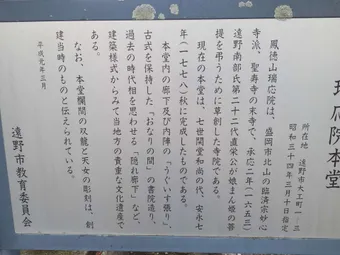 瑞応院本堂
所在地 遠野市大工町一ノ三
昭和三十四年三月十日指定
鳳徳山瑞応院は、盛岡市北山の臨済宗妙心
寺派、聖寿寺の末寺で、承応二年(一六五三)
遠野南部氏第二十二代直栄公が娘まん姫の菩
提を弔うために草創した寺院である。
現在の本堂は、七世関堂和尚の代、安永七
年(一七七八)秋に完成したものである。
本堂内の廊下及び内陣の「うぐいす張り」、
古式を保持した「おなりの間」の書院造り、
過去の時代相を思わせる「隠れ廊下」など、
建築様式からみて当地方の貴重な文化遺産で
ある。
なお、本堂欄間の双龍と天女の彫刻は、創
建当時のものと伝えられている。
平成元年三月
遠野市教育委員会